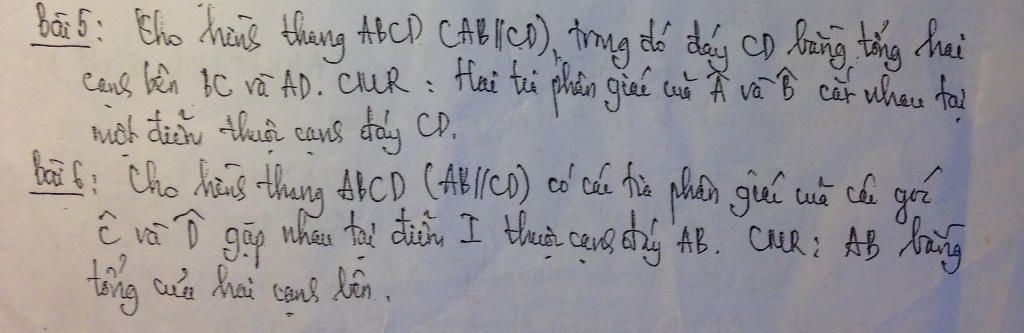 Bài 5: Cho hình thang ABCD (AB//CD), trong đó đáy CD bằng tổng hai
cạnh bên BC và AD. CMR: Hai tia phân giác của Â và B̂ cắt nhau tại
một điểm thuộc cạnh đáy CD.
Bài 6: Cho hình thang ABCD (AB//CD) có các tia phân giác của các góc
Ĉ và D̂ gặp nhau tại điểm I thuộc cạnh đáy AB. CMR: AB bằng
tổng của hai cạnh bên.